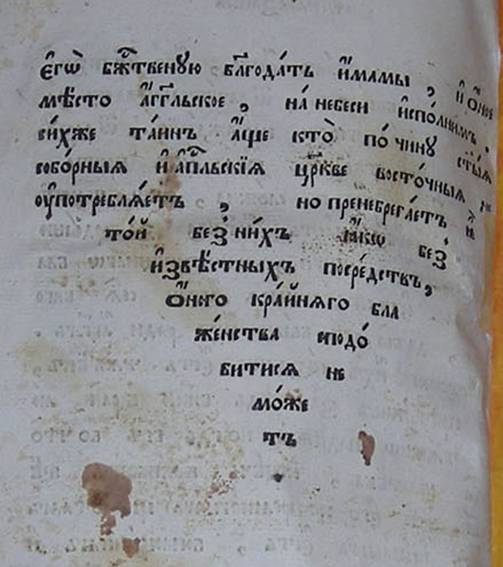 є҆гѡ̀ бж҃твеную бл҃года́ть и҆́мамы , и҆ о҆́ное
мѣсто а҆́гг҃льское , на́ небеси и҆спо́лнимъ .
си́хже та́инъ а҆́ще кто̀ по́ чину ст҃ы́ѧ
собо́рныѧ и҆ а҆пⷭ҇льскїѧ цр҃кве восто́чныѧ не
ᲂу҆потреблѧ́етъ , но пренебрега́етъ
то́й без̾ ни́хъ ꙗ҆́кѡ без̾
и҆звѣ́стныхъ посре́дствъ ,
ѻ҆́наго кра́йнѧго бла
же́нства сподо́
битисѧ не
мо́же
тъ